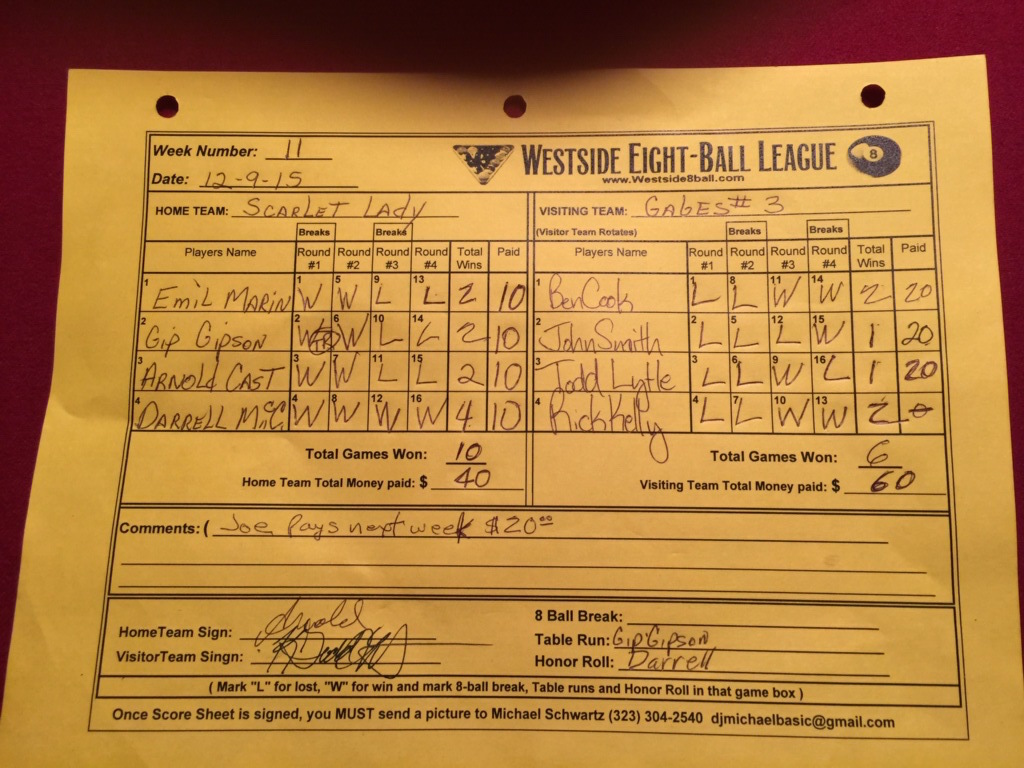 Week Number: 11
WESTSIDE EIGHT-BALL LEAGUE 8
Date: 12-9-15
www.Westside8ball.com
HOME TEAM: SCARLET LADY VISITING TEAM: GABES # 3
Breaks Breaks (Visitor Team Rotates) Breaks Breaks
Players Name Round #1 Round #2 Round #3 Round #4 Total Wins Paid Players Name Round #1 Round #2 Round #3 Round #4 Total Wins Paid
1 EMIL MARIN 1 W 5 W 9 L 13 L 2 10 1 Ben Cook 1 L 8 L 11 W 14 W 2 20
2 GIP GIPSON 2 W TR 6 W 10 L 14 L 2 10 2 John Smith 2 L 5 L 12 L 15 W 1 20
3 ARNOLD CAST 3 W 7 W 11 L 15 L 2 10 3 Todd Lytle 3 L 6 L 9 W 16 L 1 20
4 DARRELL McG 4 W 8 W 12 W 16 W 4 10 4 Rick Kelly 4 L 7 L 10 W 13 W 2 0
Total Games Won: 10 Total Games Won: 6
Home Team Total Money paid: $ 40 Visiting Team Total Money paid: $ 60
Comments: ( Joe Pays next week $20.00
HomeTeam Sign: Arnold 8 Ball Break:
VisitorTeam Singn: Table Run: Gip Gipson
Honor Roll: Darrell
( Mark "L" for lost, "W" for win and mark 8-ball break, Table runs and Honor Roll in that game box )
Once Score Sheet is signed, you MUST send a picture to Michael Schwartz (323) 304-2540 djmichaelbasic@gmail.com